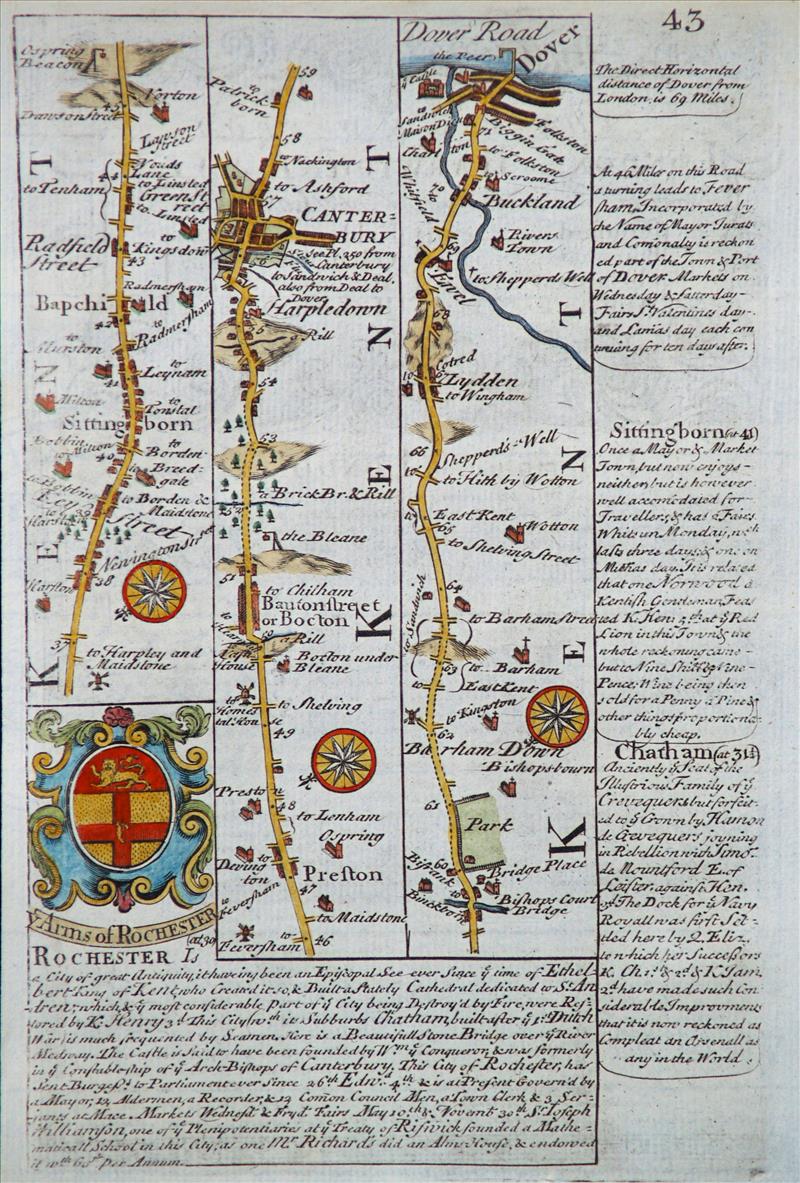 43
Ospring
Beacon
Norton
45
Lawson
Street
Vouds
Lane
44
to Tenham
to Linsted
Green St
reet
to
Linsted
to
Kingsdow
Radfield
Street
43
Radmersham
Bapchild
to
Radmersham
42
to
Murston
to
Leynam
41
Milton
to
Tonstal
Sittingborn
to
Milton
to
Borden
40
Breed-
gate
to Borden &
Maidstone
39
Street
Newington Street
38
Harston
37
to Harpley and
Maidstone
K E N T
59
to
Patrick
born
58
Nackington
to Ashford
57
CANTER-
BURY
See Pl. 250 from
Canterbury
to Sandwich & Deal,
also from Deal to
Dover
56
Harpledown
55
a Rill
54
53
a Brick Br. & Rill
52
the Bleane
51
to Chilham
Bautonstreet
or Bocton
a Rill
50
Bocton under
Bleane
to Shelving
49
Preston
48
to Lenham
Ospring
Deving
ton
Preston
47
to
Feversham
to Maidstone
to
Feversham
46
K E N T
Dover Road
the Peer
Dover
y Castle
to
Sandwich
Maison Dieu
Biggin Gate
to
Folkston
71
Charlton
to
Folkston
to
Scroome
70
Whitfield
Buckland
Rivers
Town
69
Ewel
to Shepperds Well
68
Cotred
67
Lydden
to Wingham
66
Shepperds-Well
to Hith by Wotton
to
East Kent
65
Wotton
to Shelving Street
64
to Sandwich
to Barham Street
63
to
Barham
to
East Kent
to
Kingston
62
Barham Down
Bishopsbourn
61
Park
60
Bridge Place
Bishops Court
Bridge
K E N T
The Direct Horizontal
distance of Dover from
London is 69 Miles.
At 46 Miles on this Road
a turning leads to Fever
sham, Incorporated by
the Name of Mayor Jurats
and Comonalty is reckon
ed part of the Town & Port
of Dover Markets on
Wednesday & Satterday
Fairs St. Valentines day
and Lamas day each con
tinuing for ten days after.
Sittingborn (at 41)
Once a Mayor & Market
Town, but now enjoys
neither, but is however
well accomodated for
Travellers, & has 2 Fairs
Whitsun Monday, wch
lasts three days, & one on
Mich̅as day. It is related
that one Norwood a
Kentish Gentleman Feas
ted K. Hen. 5th at y Red
Lion in this Town & the
whole reckoning came
but to Nine Shill & Nine
Pence, Wine being then
sold for a Penny a Pine &
other things proportiona-
bly cheap.
Chatham (at 31¼)
Anciently y Seat of the
Illustrious Family of y
Crevequers but forfeit-
ed to y Crown by Hamon
de Crevequers joyning
in Rebellion with Simo.
de Mountford E. of
Leister, against Hen.
3d The Dock for y Navy
Royall was first Set-
tled here by Q. Eliz.
to which her Successors
K. Ch. 1st & 2d & K. Jam.
2d have made such Con
siderable Improvments
that it is now reckoned as
Compleat an Arsenall as
any in the World.
Arms of ROCHESTER
(at 30)
ROCHESTER Is
a City of great Antiquity, it haveing been an Episcopal See ever Since y time of Ethel-
bert King of Kent, who Created it so, & Built a Stately Cathedral dedicated to St. An
drew; which, & y most considerable Part of y City being Destroy'd by Fire, were Res-
tored by K. Henry 3d This City wth its Subburbs Chatham, built after y 1st Dutch
War is much frequented by Seamen. Here is a Beautifull Stone Bridge over y River
Medway. The Castle is Said to have been founded by Wm y Conqueror, & was formerly
in y Constableship of y Arch-Bishops of Canterbury. This City of Rochester, has
Sent Burgess to Parliament ever Since 26th Edw. 4th & is at Present Govern'd by
a Mayor, 12 Aldermen, a Recorder, & 12 Comon Council Men, a Town Clerk & 3 Ser-
jants at Mace Markets Wednesd. & Fryd. Fairs May 19th & Novemb. 30th Sr. Joseph
Williamson, one of y Plenipotentiaries at y Treaty of Riswick founded a Mathe-
maticall School in this City, as one Mr. Richards did an Alms House, & endowed
it wth 60lb per Annum.